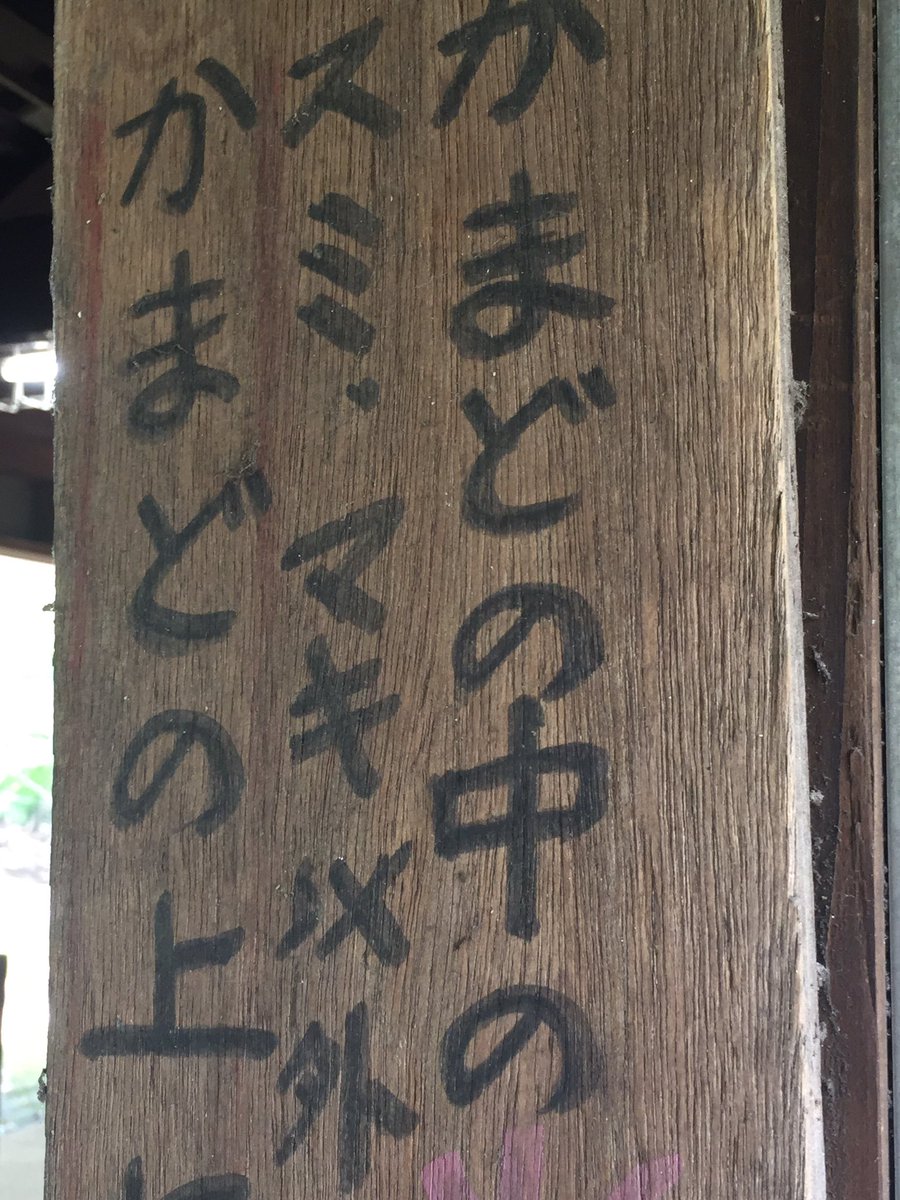 かまどの中の
スミ・マキ以外
かまどの上に